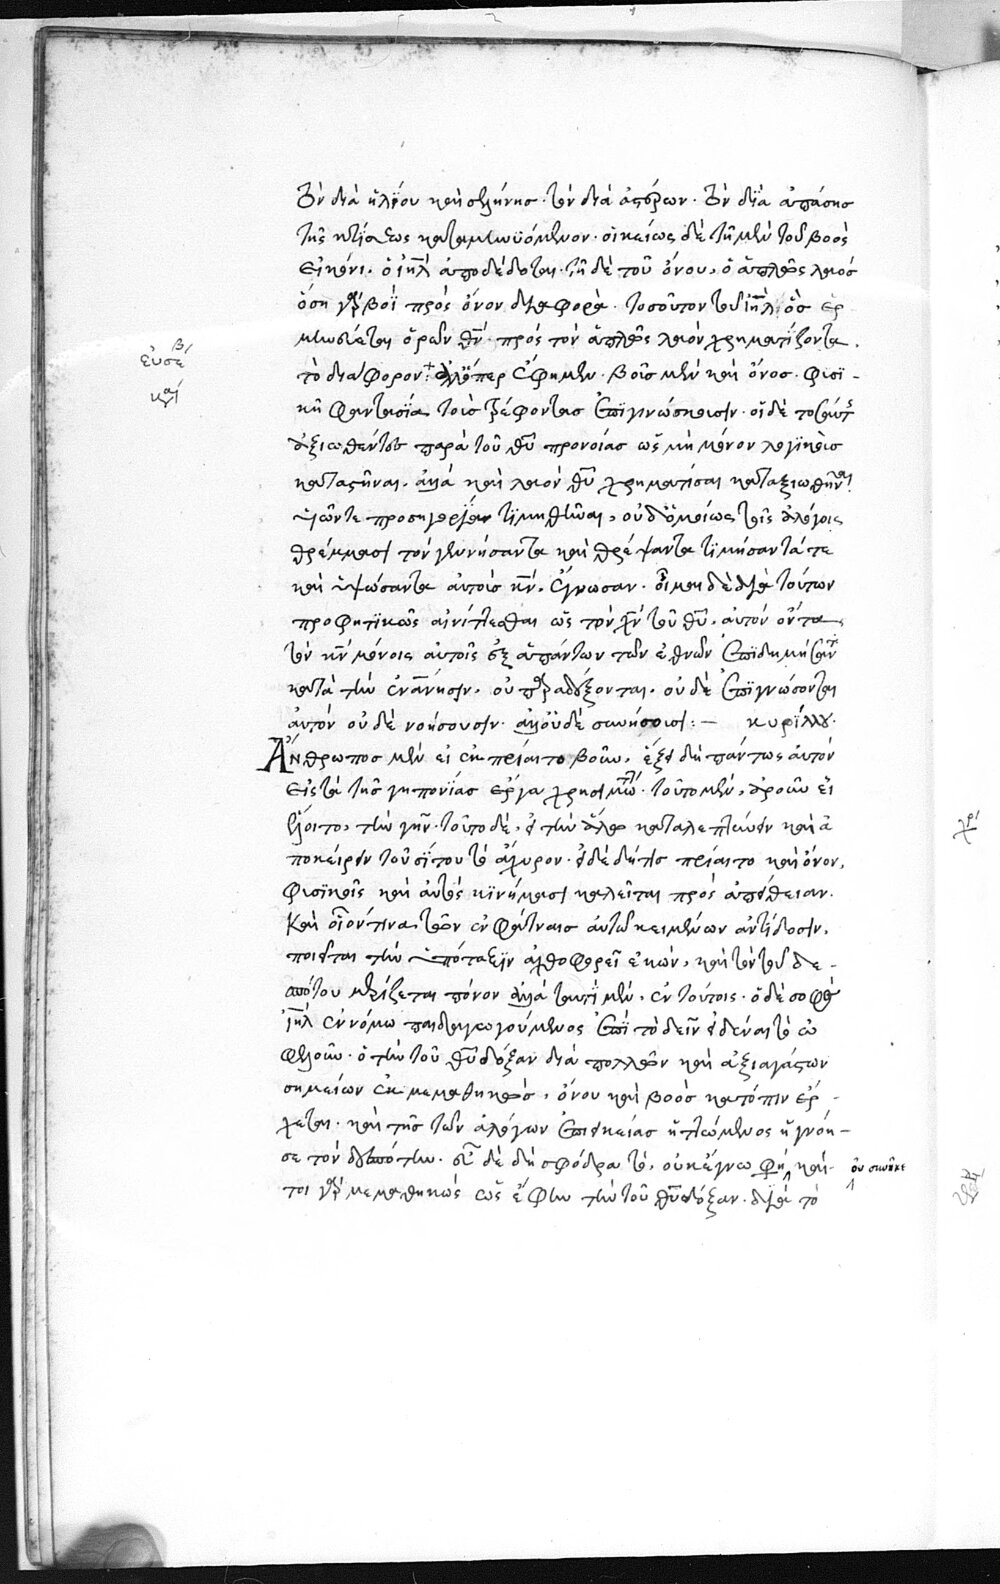 τὸν διὰ ἡλίου καὶ σελήνης· τὸν διὰ ἀστέρων· τὸν διὰ ἁπάσης
τῆς κτίσεως καταμηνυόμενον· οἰκείως δὲ τῆ μὲν τοῦ βοὸς
εἰκόνι, ὁ ἰηλ ἀποδέδοται· τῆ δὲ τοῦ ὄνου, ὁ ἁπλῶς λαός
ὅση γὰρ βοῒ πρὸς ὄνον διαφορὰ· τοσοῦτον τοῦ ἰηλ ὡς ἑρ
μηνεύεται ὁρῶν θν· πρὸς τὸν ἁπλῶς λαὸν χρηματίζοντα,
τὸ διάφορον· ἀλλ' ὅπερ ἔφημεν· βοῦς μὲν καὶ ὄνος· φυσι-
κῆ φαντασία τοὺς τρέφοντας ἐπιγινώσκουσιν· οἱ δὲ τοσαύτ
ἀξιωθέντες παρὰ τοῦ θυ προνοίας ὡς μὴ μόνον λογικοὺς
καταστῆναι, ἀλλὰ καὶ λαὸν θυ χρηματίσαι καταξιωθῆναι
υἱῶν τε προσηγορίαν τιμηθῆναι, οὐδ' ὁμοίως τοῖς ἀλόγοις
θρέμμασι τὸν γεννήσαντα καὶ θρέψαντα τιμήσαντά τε
καὶ ὑψώσαντα αὐτοὺς κν, ἔγνωσαν· οἶμαι δὲ διὰ τούτων
προφητικῶς αἰνίττεσθαι ὡς τὸν χν τοῦ θυ, αὐτὸν ὄντα
τὸν κν μόνοις αὐτοῖς ἐξ ἁπάντων τῶν ἐθνῶν ἐπιδημήσαντ
κατὰ τὴν ἐνανησιν, οὐ παραδέξονται, οὐδὲ ἐπιγνώσονται
αὐτὸν οὐδὲ νοήσουσιν· ἀλλ' οὐδὲ συνήσουσι:— κυρίλλου·
Ἄνθρωπος μὲν εἰ ἐκπρίαιτο βοῦν, ἕξει δὴ πάντως αὐτὸν
εἰς τὰ τῆς γηπονίας ἔργα χρησιμώ· τοῦτο μὲν, ἀροῦν εἰ
ἕλοιτο, τὴν γῆν· τοῦτο δὲ, εἰ τὴν ἅλω καταλεπτύνειν καὶ ἀ
ποκείρειν τοῦ σίτου τὸ ἄχυρον· εἰ δὲ δή τις πρίαιτο καὶ ὄνον,
φυσικοῖς καὶ αὐτὸς κινήμασι καλεῖται πρὸς ἀπείθειαν·
καὶ οἱονεί τινα τῶν ἐν φάτναις αὐτῶ κειμένων ἀντίδοσιν,
ποιεῖται τὴν ὑπόταξιν ἀχθοφορεῖ ἑκὼν, καὶ τὸν τοῦ δε-
σπότου μερίζεται πόνον ἀλλὰ ταυτὶ μὲν, ἐν τούτοις· ὁ δὲ σοφὸς
ἰηλ ἐν νόμω παιδαγωγούμενος ἐπὶ τὸ δεῖν εἰδέναι τὸ ὠ
φελοῦν· ὁ τὴν τοῦ θυ δόξαν διὰ πολλῶν καὶ ἀξιαγάστων
σημείων ἐκμεμαθηκὼς, ὄνου καὶ βοὸς κατόπιν ἔρ-
χεται· καὶ τῆς τῶν ἀλόγων ἐπιεικείας ἡττώμενος ἠγνόη-
σε τὸν δεσπότην· εὖ δὲ δὴ σφόδρα τὸ, οὐκ ἔγνω φη καί-
τοι γὰρ μεμαθηκώς ὡς ἔφην τὴν τοῦ θυ δόξαν· διὰ τὸ
οὐ συνῆκε
εὐσεβ
και